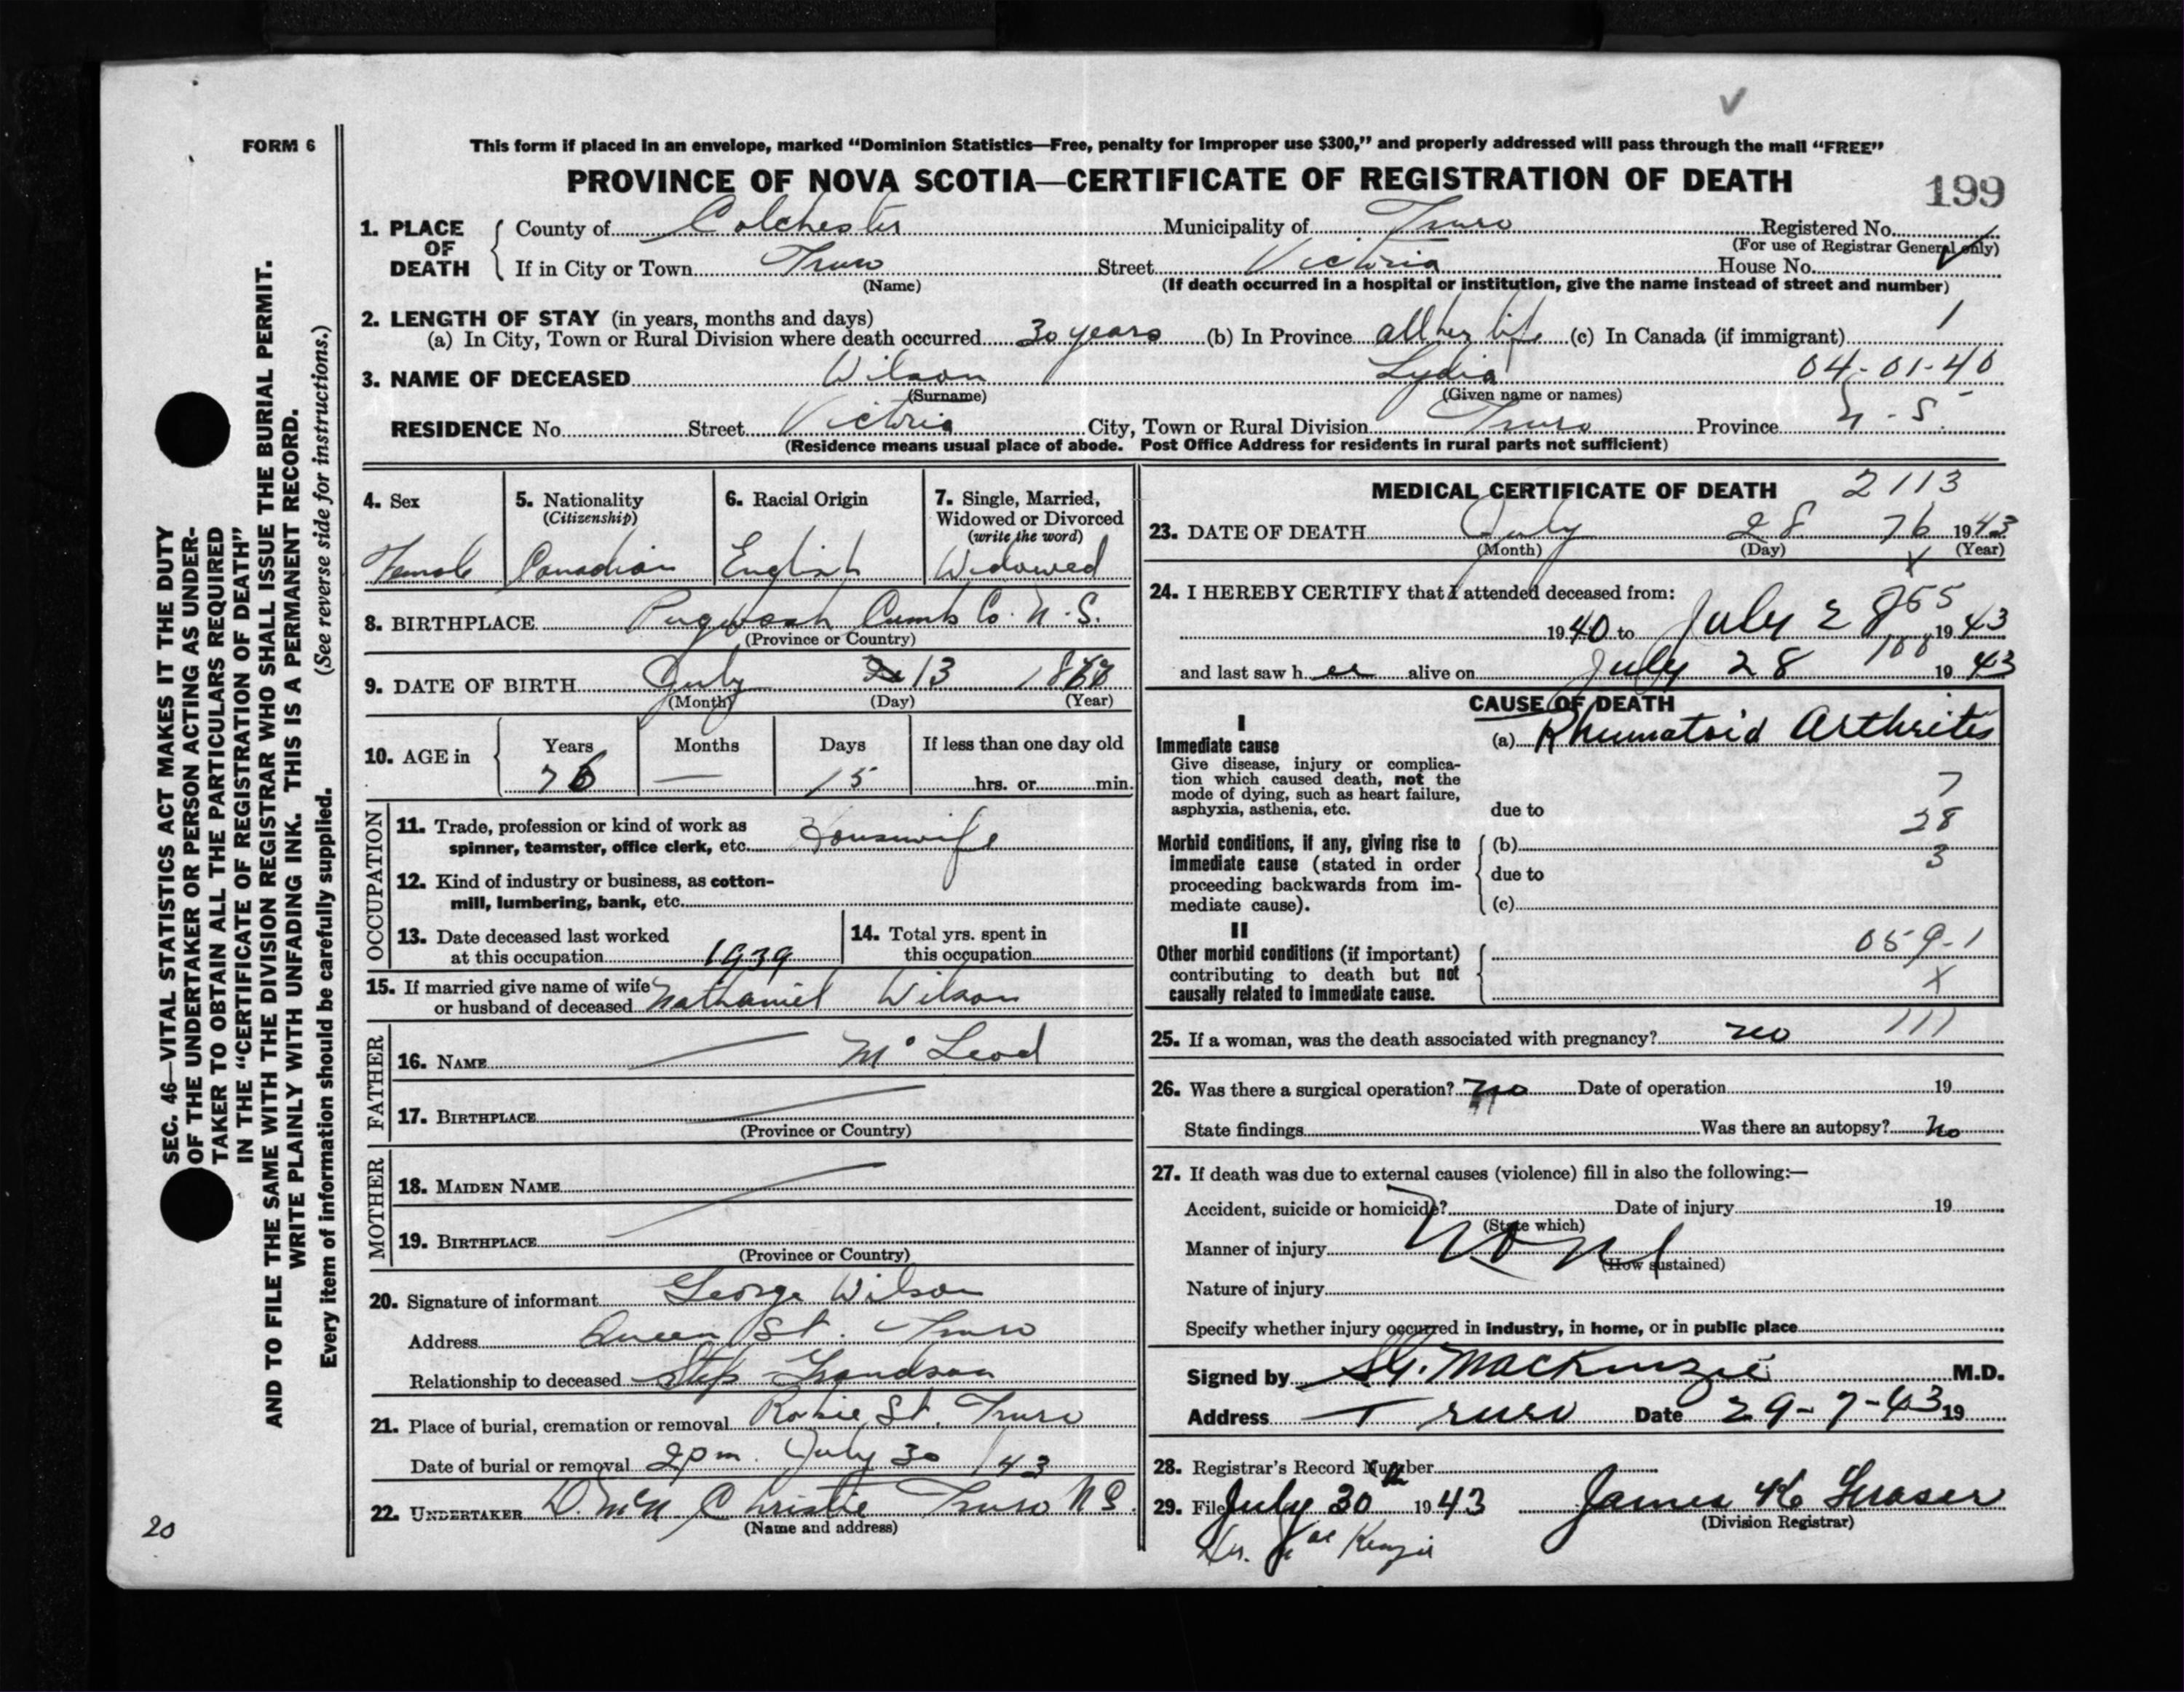 FORM 6
This form if placed in an envelope, marked "Dominion Statistics—Free, penalty for improper use $300," and properly addressed will pass through the mail "FREE"
PROVINCE OF NOVA SCOTIA—CERTIFICATE OF REGISTRATION OF DEATH
199
1. PLACE OF DEATH County of Colchester Municipality of Truro Registered No.
(For use of Registrar General only)
If in City or Town Truro Street Victoria House No.
(Name) (If death occurred in a hospital or institution, give the name instead of street and number)
2. LENGTH OF STAY (in years, months and days)
(a) In City, Town or Rural Division where death occurred 30 years (b) In Province all her life (c) In Canada (if immigrant) 1
3. NAME OF DECEASED Wilson Lydia 04-01-40
(Surname) (Given name or names)
RESIDENCE No. Street Victoria City, Town or Rural Division Truro Province N.S.
(Residence means usual place of abode. Post Office Address for residents in rural parts not sufficient)
4. Sex
Female
5. Nationality
(Citizenship)
Canadian
6. Racial Origin
English
7. Single, Married,
Widowed or Divorced
(write the word)
Widowed
8. BIRTHPLACE Pugwash Cumb Co. N.S.
(Province or Country)
9. DATE OF BIRTH July 13
(Month) (Day) (Year)
10. AGE in Years Months Days If less than one day old
76 — 15 hrs. or min.
OCCUPATION
11. Trade, profession or kind of work as
spinner, teamster, office clerk, etc. Housewife
12. Kind of industry or business, as cotton-
mill, lumbering, bank, etc.
13. Date deceased last worked
at this occupation 1939
14. Total yrs. spent in
this occupation
15. If married give name of wife
or husband of deceased Nathaniel Wilson
FATHER
16. NAME McLeod
17. BIRTHPLACE
(Province or Country)
MOTHER
18. MAIDEN NAME
19. BIRTHPLACE
(Province or Country)
20. Signature of informant George Wilson
Address Queen St. Truro
Relationship to deceased Step Grandson
21. Place of burial, cremation or removal Robie St. Truro
Date of burial or removal 2 pm. July 30 /43
22. UNDERTAKER D. McN Christie Truro N S.
(Name and address)
MEDICAL CERTIFICATE OF DEATH 2113
23. DATE OF DEATH July 28 76 1943
(Month) (Day) (Year)
X
24. I HEREBY CERTIFY that I attended deceased from:
1940 to July 28 1943
and last saw her alive on July 28 1943
CAUSE OF DEATH
I
Immediate cause
Give disease, injury or complica-
tion which caused death, not the
mode of dying, such as heart failure,
asphyxia, asthenia, etc.
(a) Rhumatoid Arthrites
7
due to
28
Morbid conditions, if any, giving rise to
immediate cause (stated in order
proceeding backwards from im-
mediate cause).
(b)
3
due to
(c)
II
Other morbid conditions (if important)
contributing to death but not
causally related to immediate cause.
059-1
X
25. If a woman, was the death associated with pregnancy? no 111
26. Was there a surgical operation? no Date of operation 19
State findings Was there an autopsy? no
27. If death was due to external causes (violence) fill in also the following:—
Accident, suicide or homicide? Date of injury 19
(State which)
Manner of injury None
(How sustained)
Nature of injury
Specify whether injury occurred in industry, in home, or in public place
Signed by S.G. MacKinzie M.D.
Address Truro Date 29-7-43 19
28. Registrar's Record Number
29. File July 30th 1943 James H. Fraser
(Division Registrar)
Dr. MacKenzie
SEC. 46—VITAL STATISTICS ACT MAKES IT THE DUTY
OF THE UNDERTAKER OR PERSON ACTING AS UNDER-
TAKER TO OBTAIN ALL THE PARTICULARS REQUIRED
IN THE "CERTIFICATE OF REGISTRATION OF DEATH"
AND TO FILE THE SAME WITH THE DIVISION REGISTRAR WHO SHALL ISSUE THE BURIAL PERMIT.
WRITE PLAINLY WITH UNFADING INK. THIS IS A PERMANENT RECORD.
Every item of information should be carefully supplied. (See reverse side for instructions.)
20